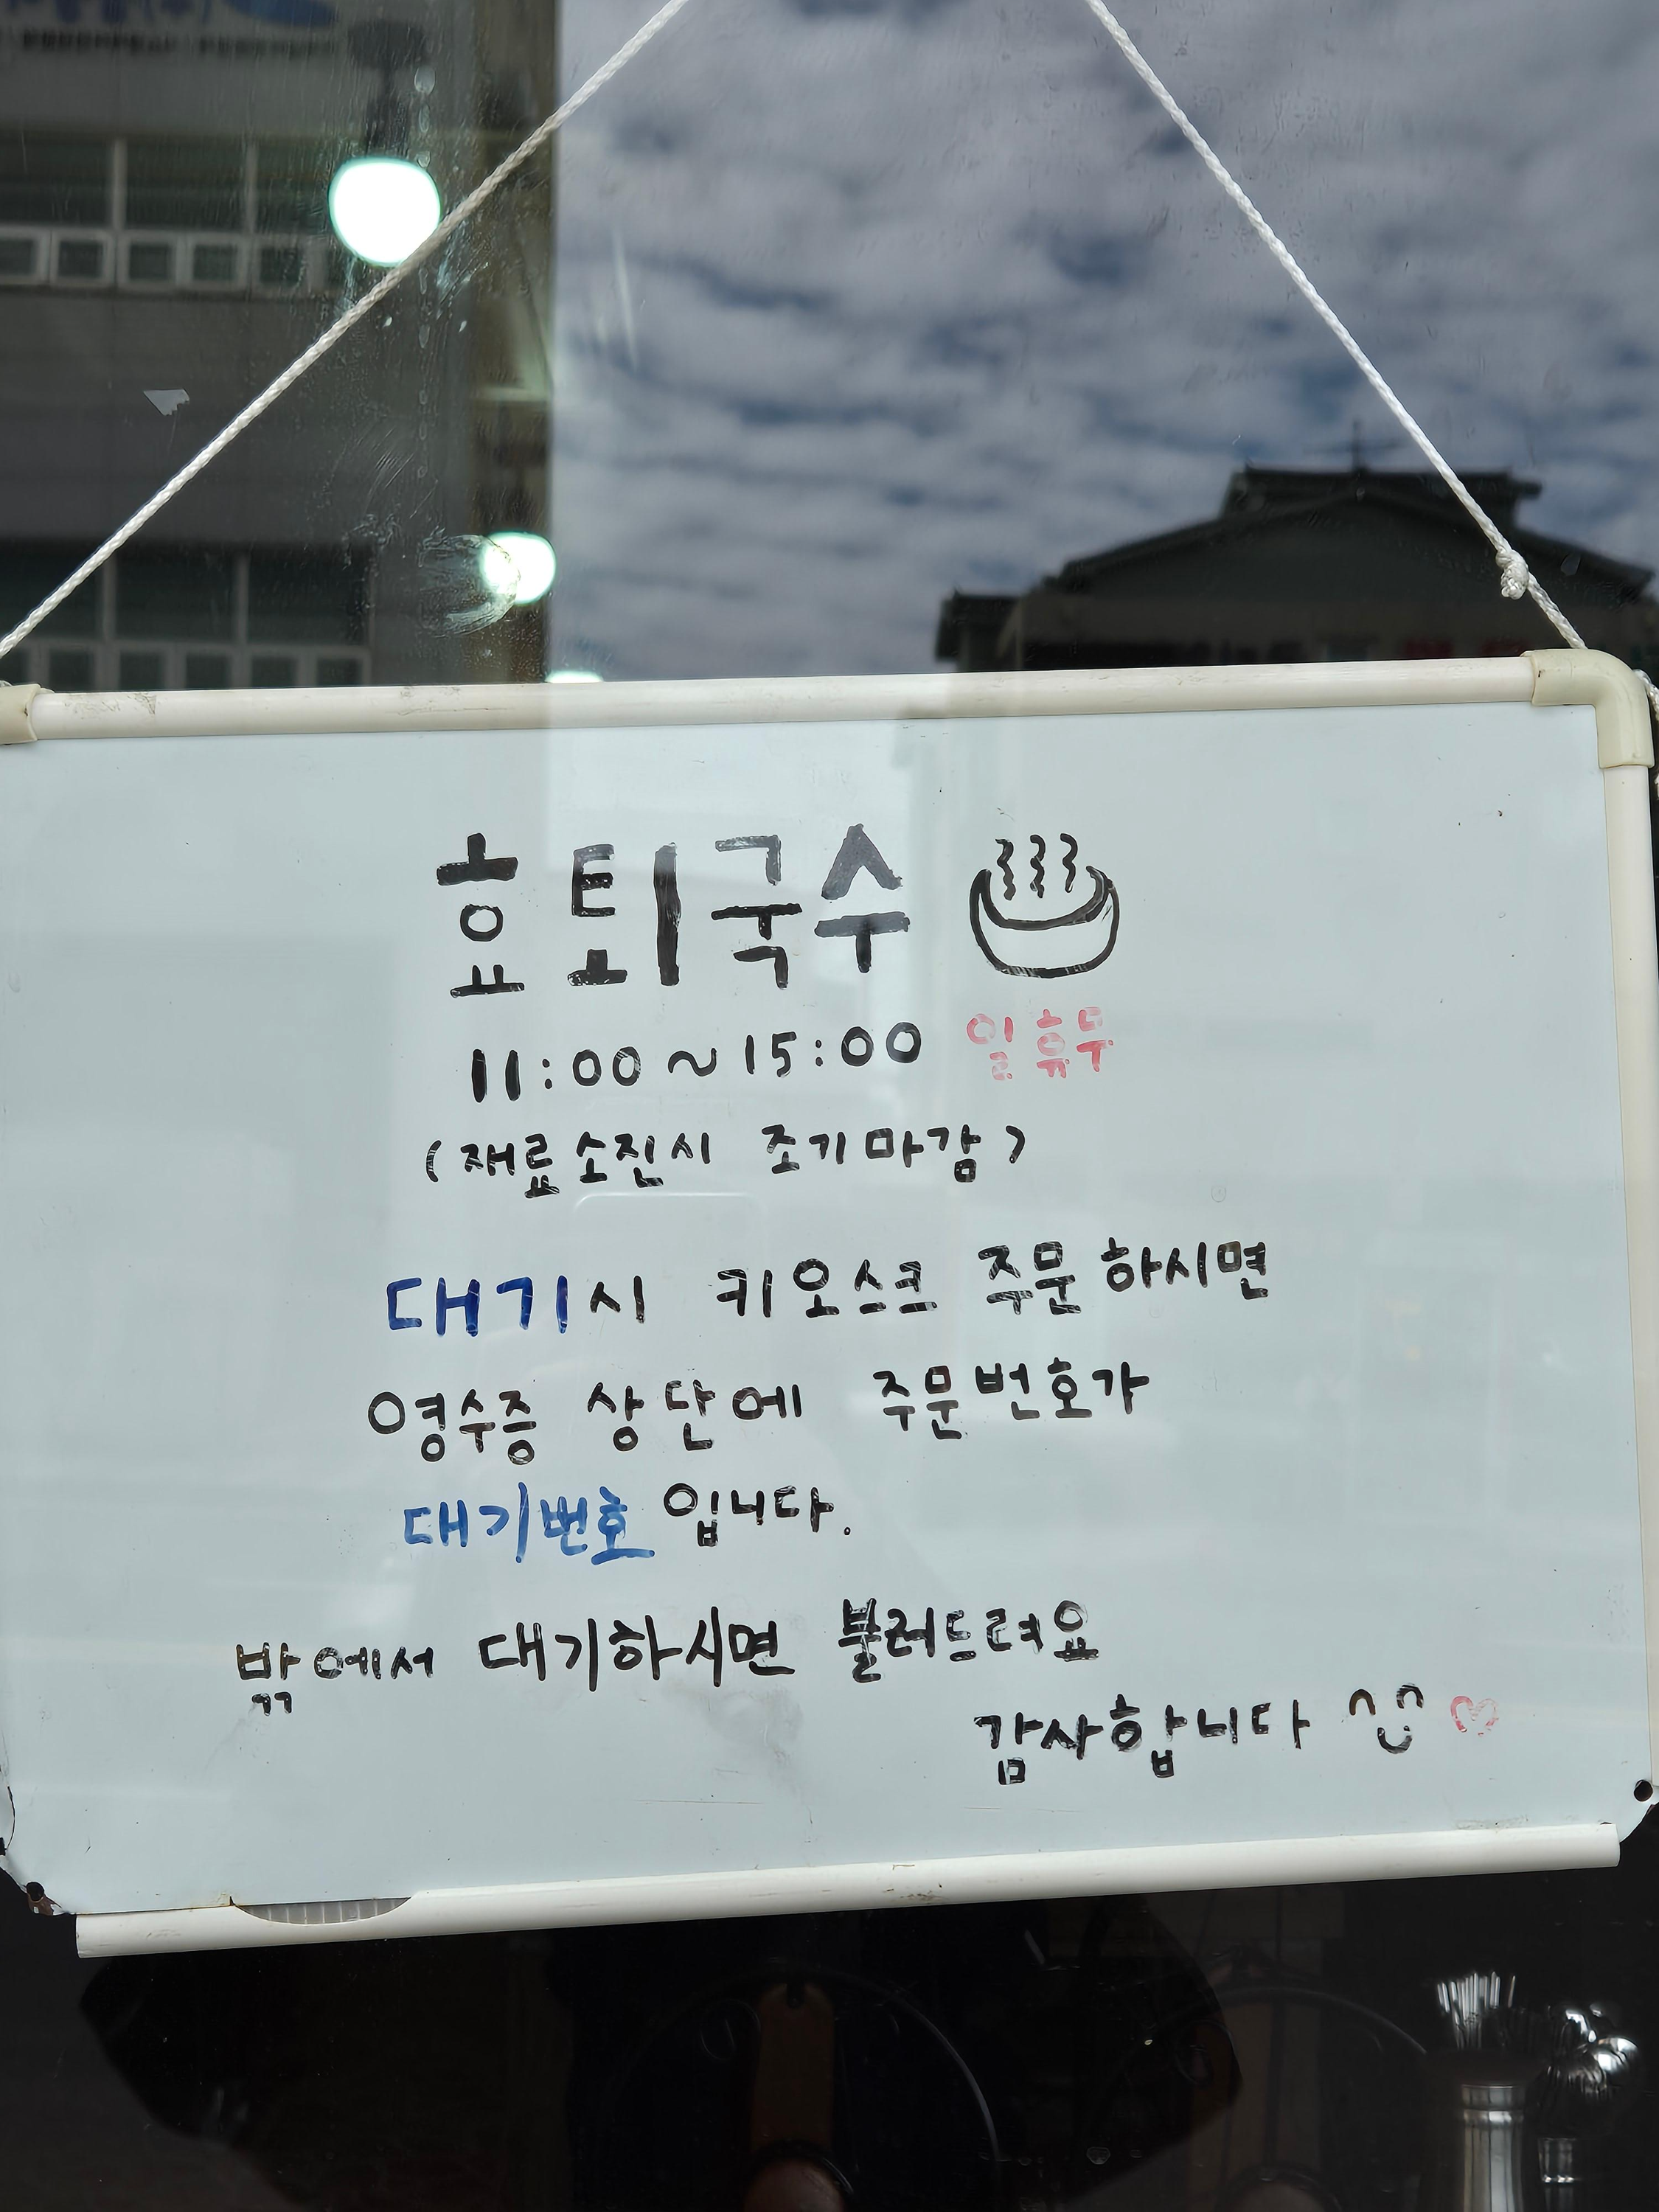 효퇴국수
11:00~15:00 일 휴무
(재료소진시 조기마감)
대기시 키오스크 주문하시면
영수증 상단에 주문번호가
대기번호 입니다.
밖에서 대기하시면 불러드려요
감사합니다